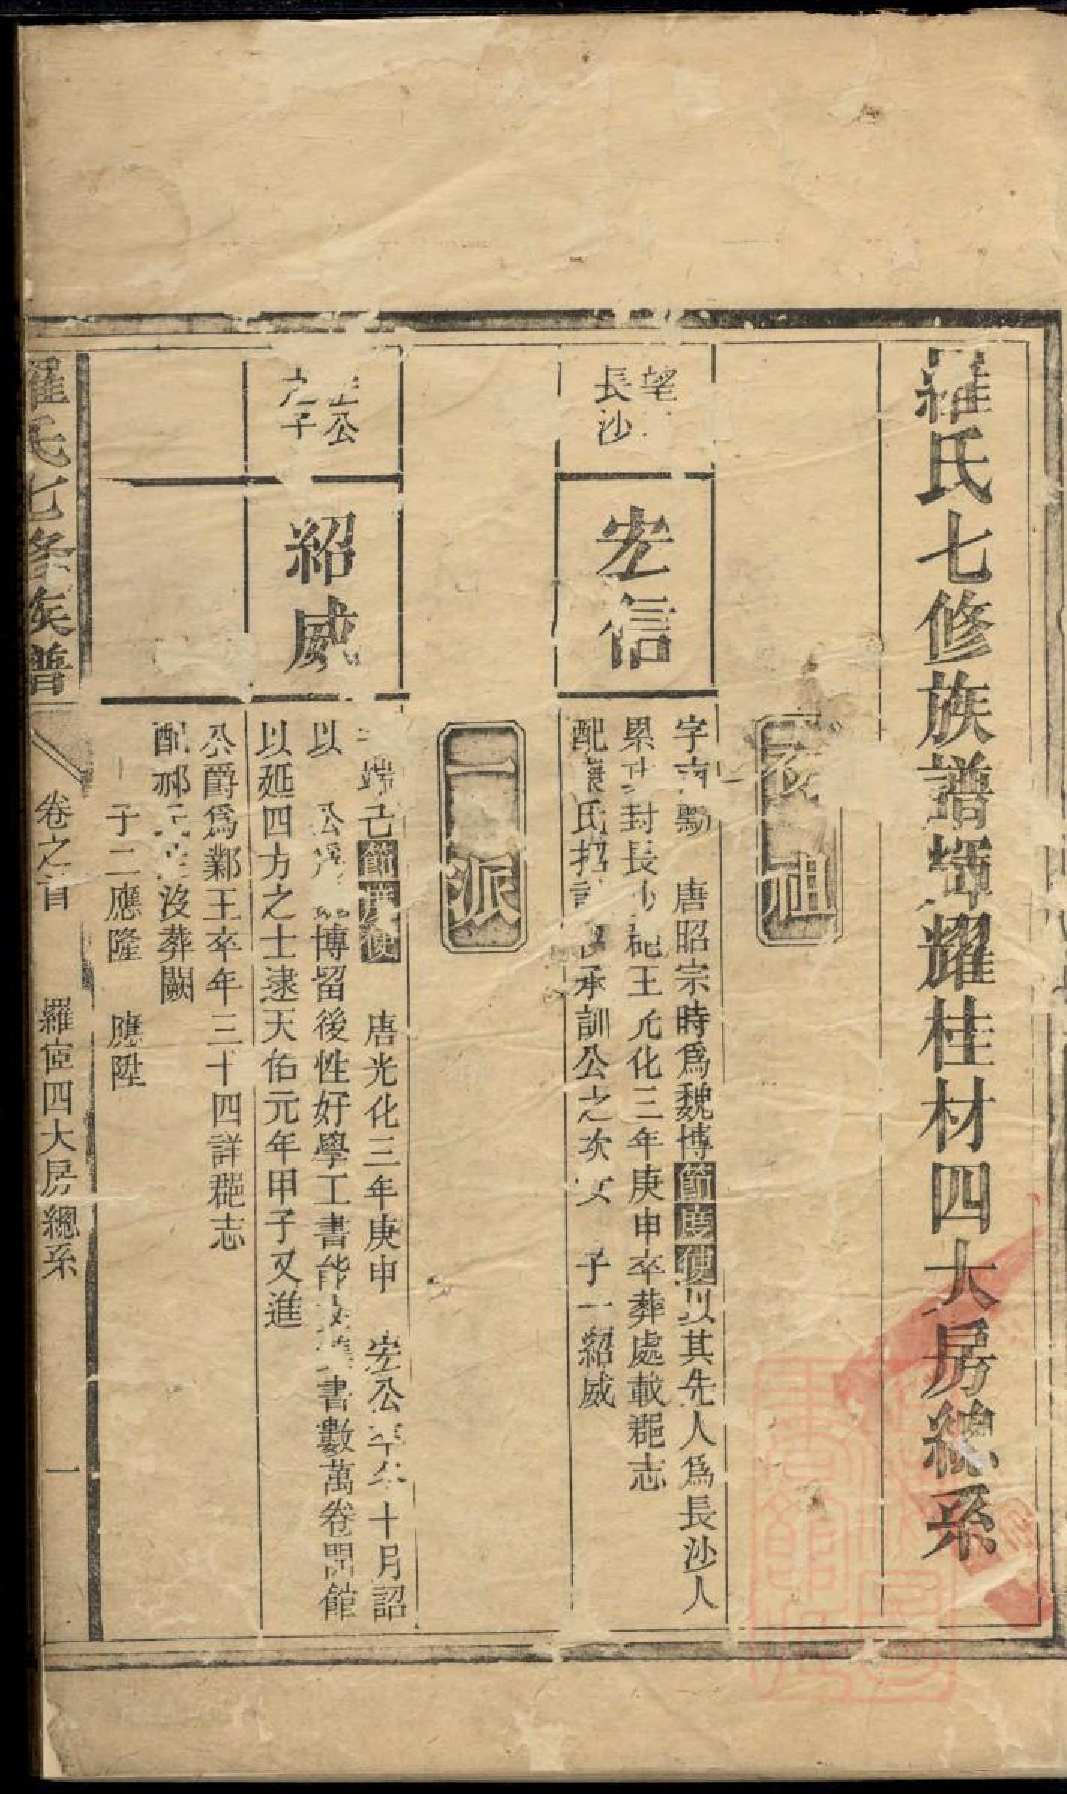 羅氏七修族譜輝耀桂材四大房總系
祖
望
長沙
宏信
字 勳　唐昭宗時爲魏博節度使以其先人爲長沙人
累 封長沙 王光化三年庚申卒葬處載郡志
配 氏 承訓公之次女　子一紹威
一派
公
之子
紹威
端己節度使　唐光化三年庚申　宏公卒 十月詔
以 公 博留後性好學工書能文 書數萬卷開館
以延四方之士逮天佑元年甲子又進
公爵爲鄴王卒年三十四詳郡志
配 沒葬闕
子二應隆　應陞
羅氏七修族譜
卷之首
羅 四大房總系
一